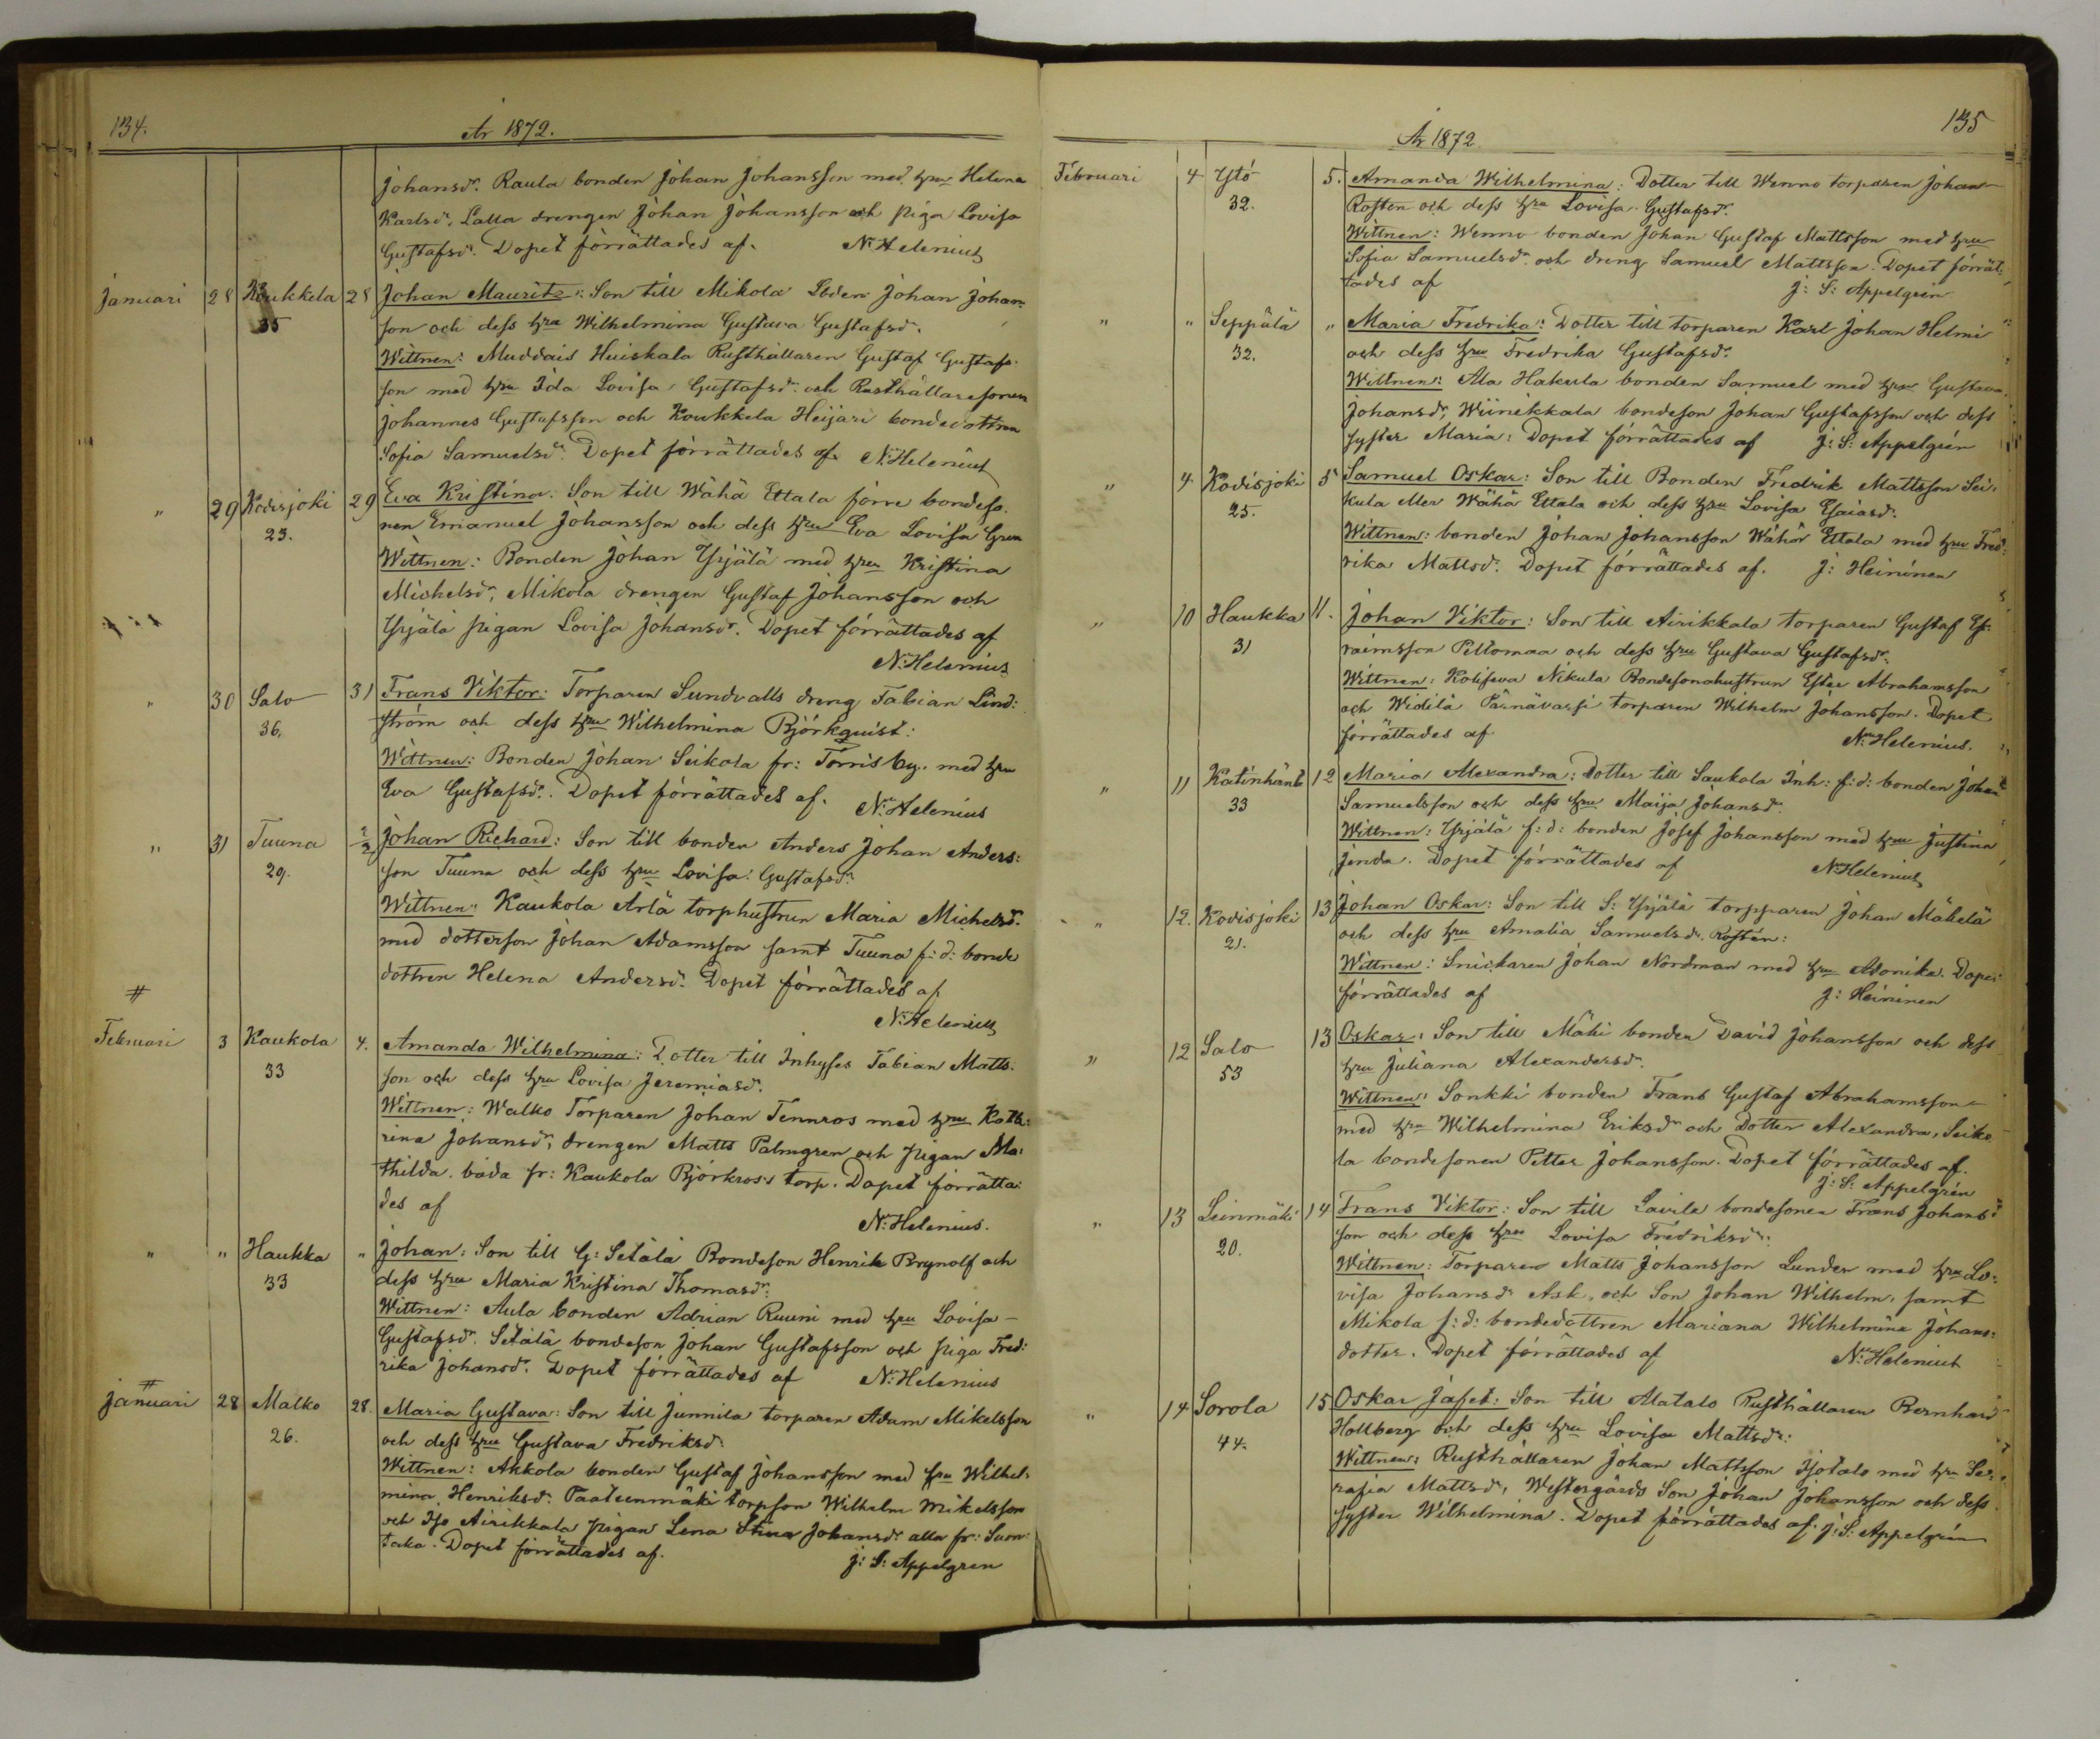 134.
År 1872.
Johansdr. Raula bonden Johan Johansson med hru Helena
Karlsdr, Lalla drengen Johan Johansson och piga Lovisa
Gustafsdr. Dopet förrättades af. N: Helenius
Januari 28 Koukkela 28 Johan Mauritz: Son till Mikola Johan Johans-
35 son och dess hru Wilhelmina Gustava Gustafsdr.
Wittnen: Muddais Huiskala Rusthållaren Gustaf Gustafs-
son med hru Ida Lovisa Gustafsdr och Rusthållaresonen
Johannes Gustafsson och Koukkela Heijari bondedottren
Sofia Samuelsdr. Dopet förrättades af N: Helenius
" 29 Kodisjoki 29 Eva Kristina: Son till Wähä Ettala förre bondeso-
23. nen Emanuel Johansson och dess hru Eva Lovisa Gren
Wittnen: Bonden Johan Yrjälä med hru Kristina
Michelsdr, Mikola drengen Gustaf Johansson och
Yrjälä pigan Lovisa Johansdr. Dopet förrättades af
N: Helenius
" 30 Salo 31 Frans Viktor: Torparen Sundvalls dreng Fabian Lind:
36. ström och dess hru Wilhelmina Björkquist:
Wittnen: Bonden Johan Seikola fr: Torris by. med hru
Eva Gustafsdr. Dopet förrättades af. N: Helenius
" 31 Tuuna 2/2 Johan Richard: Son till bonden Anders Johan Anders:
29. son Tuuna och dess hru Lovisa Gustafsdr.
Wittnen: Kaukola Arlä torphustrun Maria Michelsdr.
med dotterson Johan Adamsson samt Tuuna f: d: bonde
dottren Helena Andersdr. Dopet förrättades af
N: Helenius
#
Februari 3 Kaukola 4. Amanda Wilhelmina: Dotter till Inhyses Fabian Matts-
33 son och dess hru Lovisa Jeremiasdr.
Wittnen: Walko Torparen Johan Tennros med hru Katha:
rina Johansdr, drengen Matts Palmgren och pigan Ma:
thilda. båda fr: Kaukola Björkross torp. Dopet förrätta:
des af N: Helenius.
" " Haukka " Johan: Son till G: Setälä Bondeson Henrik Brynolf och
33 dess hru Maria Kristina Thomasdr.
Wittnen: Aula bonden Adrian Ruuni med hru Lovisa
Gustafsdr. Setälä bondeson Johan Gustafsson och piga Fred:
rika Johansdr. Dopet förrättades af N: Helenius
#
Januari 28 Malko 28. Maria Gustava: Son till Junnila torparen Adam Mikelsson
26. och dess hru Gustava Fredriksdr.
Wittnen: Akkola bonden Gustaf Johansson med hru Wilhel-
mina Henriksdr. Paateenmäki torpson Wilhelm Mikelsson
och Iso Airikkala pigan Lena Stina Johansdr alla fr: Suon-
taka. Dopet förrättades af. J: S: Appelgren
135
År 1872
Februari 4 Ytö 5. Amanda Wilhelmina: Dotter till Wenno torparen Johan
32. Rosten och dess hru Lovisa Gustafsdr.
Wittnen: Wenno bonden Johan Gustaf Mattsson med hru
Sofia Samuelsdr och dreng Samuel Mattsson. Dopet förrät-
tades af J: S: Appelgrén
" " Seppälä " Maria Fredrika: Dotter till torparen Karl Johan Helmi
32. och dess hru Fredrika Gustafsdr.
Wittnen: Ala Hakula bonden Samuel med hru Gustava
Johansdr, Wiinikkala bondeson Johan Gustafsson och dess
syster Maria: Dopet förrättades af J: S: Appelgrén
" 4 Kodisjoki 5 Samuel Oskar: Son till Bonden Fredrik Mattsson Sei-
25. kula eller Wähä Ettala och dess hru Lovisa Esaiasdr.
Wittnen: bonden Johan Johansson Wähä Ettala med hru Fred:
rika Mattsdr. Dopet förrättades af. J: Heininen
" 10 Haukka 11. Johan Viktor: Son till Airikkala torparen Gustaf Ef-
31 raimsson Peltomaa och dess hru Gustava Gustafsdr.
Wittnen: Nikula Bondesonahustrun Ester Abrahamsson
och Widilä torparen Wilhelm Johansson. Dopet
förrättades af N: Helenius.
" 11 Katinhänt 12 Maria Alexandra: Dotter till Saukola Inh: f: d: bonden Johan
33 Samuelsson och dess hru Maija Johansdr.
Wittnen: Yrjälä f: d: bonden Josef Johansson med hru Justina
Jinda. Dopet förrättades af N: Helenius
" 12. Kodisjoki 13 Johan Oskar: Son till S: Yrjälä torpparen Johan Mäkelä
21. och dess hru Amalia Samuelsdr. Rostén:
Wittnen: Snickaren Johan Nordman med hru Adonika. Dopet
förrättades af J: Heininen
" 12 Salo 13 Oskar: Son till Mäki bonden David Johansson och dess
53 hru Juliana Alexandersdr.
Wittnen: Sonkki bonden Frans Gustaf Abrahamsson
med hru Wilhelmina Eriksdr och Dotter Alexandra, Seiko
la bondesonen Petter Johansson. Dopet förrättades af.
J: S: Appelgrén
" 13 Leinmäki 14 Frans Viktor: Son till Lavila bondesonen Frans Johans-
20. son och dess hru Lovisa Fredriksdr:
Wittnen: Torparen Matts Johansson Lunden med hru Lo:
visa Johansdr Ask, och Son Johan Wilhelm, samt
Mikola f: d: bondedottren Mariana Wilhelmina Johans:
dotter. Dopet förrättades af N: Helenius
" 14 Sorola 15 Oskar Jafet: Son till Alatalo Rusthållaren Bernhard
44. Hollberg och dess hru Lovisa Mattsdr:
Wittnen: Rusthållaren Johan Mattsson Isotalo med hru Se-
rafia Mattsdr, Westergårds Son Johan Johansson och dess
syster Wilhelmina. Dopet förrättades af. J: S: Appelgrén